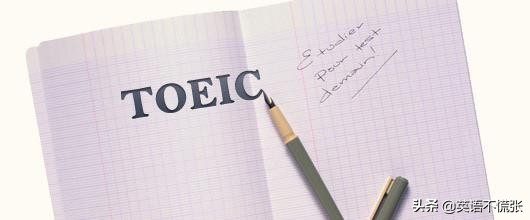 TOEIC
Etudier
pour test
demain!
头条 @英语不慌张